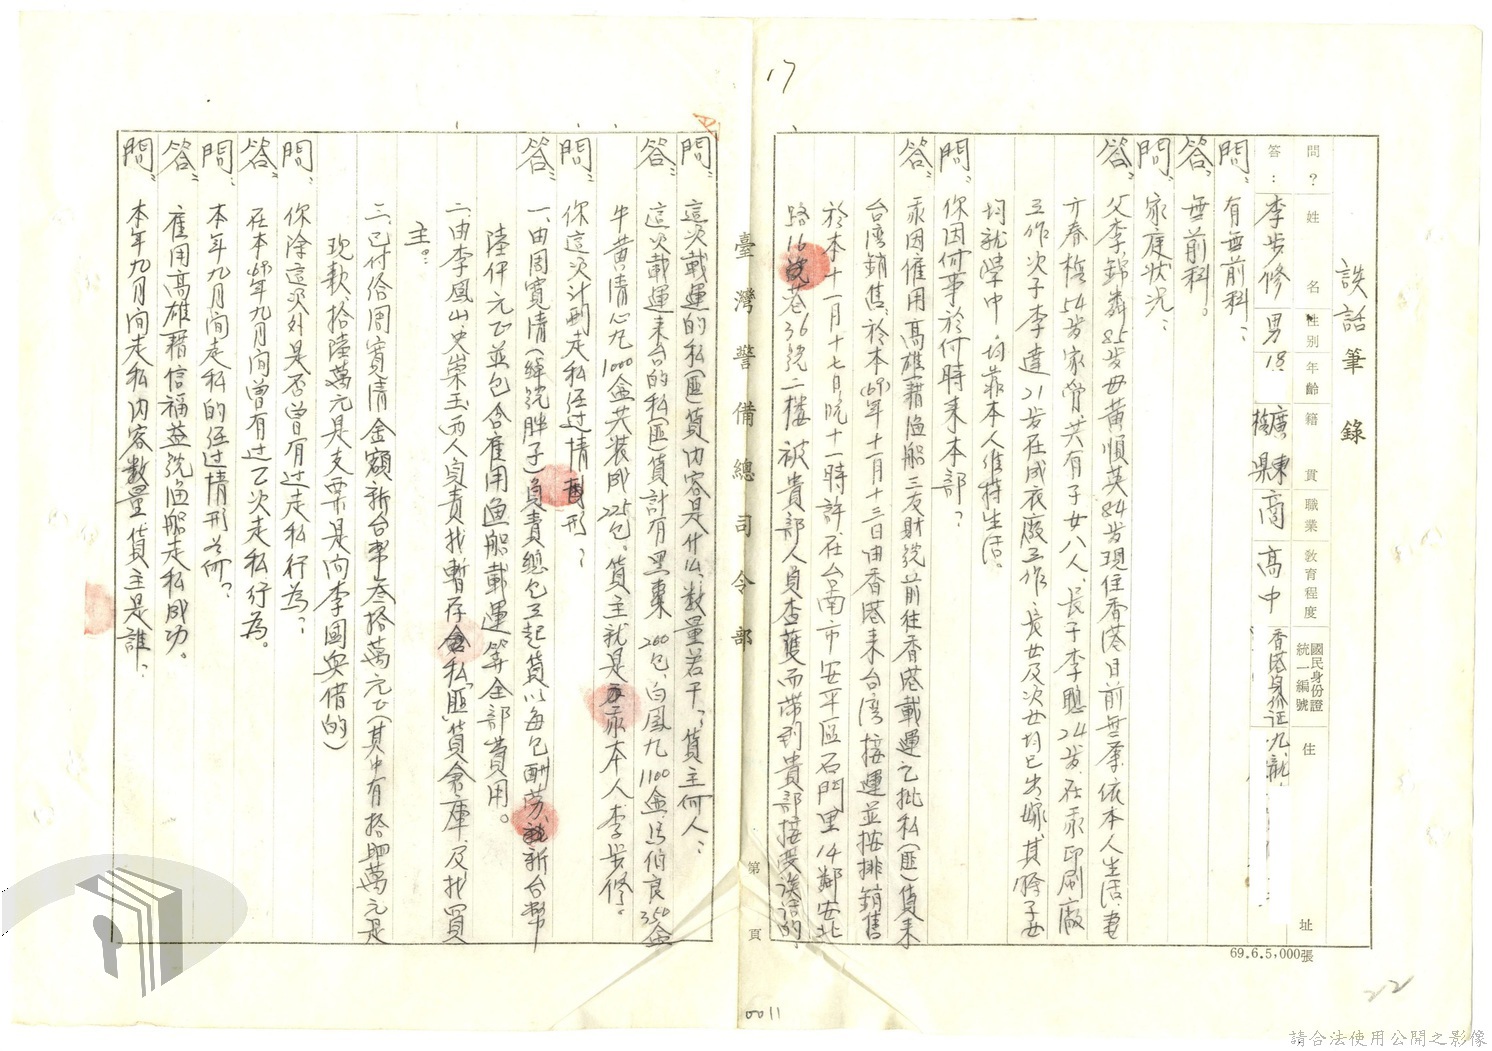 17
談話筆錄
問？ 姓名 性別 年齡 籍貫 職業 教育程度 國民身份證統一編號 住址
答： 李步修 男 廣東 縣 商 高中 香港身份証 九龍
問：有無前科？
答：無前科。
問：家庭狀況？
答：父李錦麟85歲母黃順英84歲現住香港目前無業依本人生活，妻
方春梅54歲家管共有子女八人、長子李聰24歲、在承印刷廠
工作次子李達21歲在成衣廠工作長女及次女均已出嫁、其餘子女
均就學中均靠本人維持生活。
問：你因何事於何時來本部？
答：我因僱用高雄籍漁船三友財號前往香港載運乙批私(匪)貨來
台灣銷售、於本(69)年十一月十三日由香港來台灣接運並按排銷售
於本十一月十七日晚十一時許在台南市安平區石門里14鄰安北
路16號巷36號二樓被貴部人員查獲而帶到貴部接受談話的。
臺灣警備總司令部
第 頁
問：這次載運的私(匪)貨內容是什么、數量若干、貨主何人？
答：這次載運來台的私(匪)貨計有黑棗200包、白鳳丸1100盒、馬伯良350盒
牛黃清心丸1000盒共裝成225包。貨主就是我本人李步修。
問：你這次計劃走私經過情形？
答：一、由周寶清(綽號胖子)負責總包工起貨以每包酬勞新台幣
陸仟元正並包含雇用漁船載運等全部費用。
二、由李鳳山、史崇玉兩人負責找暫存私「匪」貨倉庫、及找買
主。
三、已付給周寶清金額新台幣叁拾萬元正(其中有拾肆萬元是
現款、拾陸萬元是支票是向李國興借的)
問：你除這次外是否曾有过走私行為？
答：在本69年九月間曾有过乙次走私行為。
問：本年九月間走私的經过情形若何？
答：雇用高雄籍信福益號漁船走私成功。
問：本年九月間走私內容數量貨主是誰？
69.6.5,000張
22
0011
請合法使用公開之影像